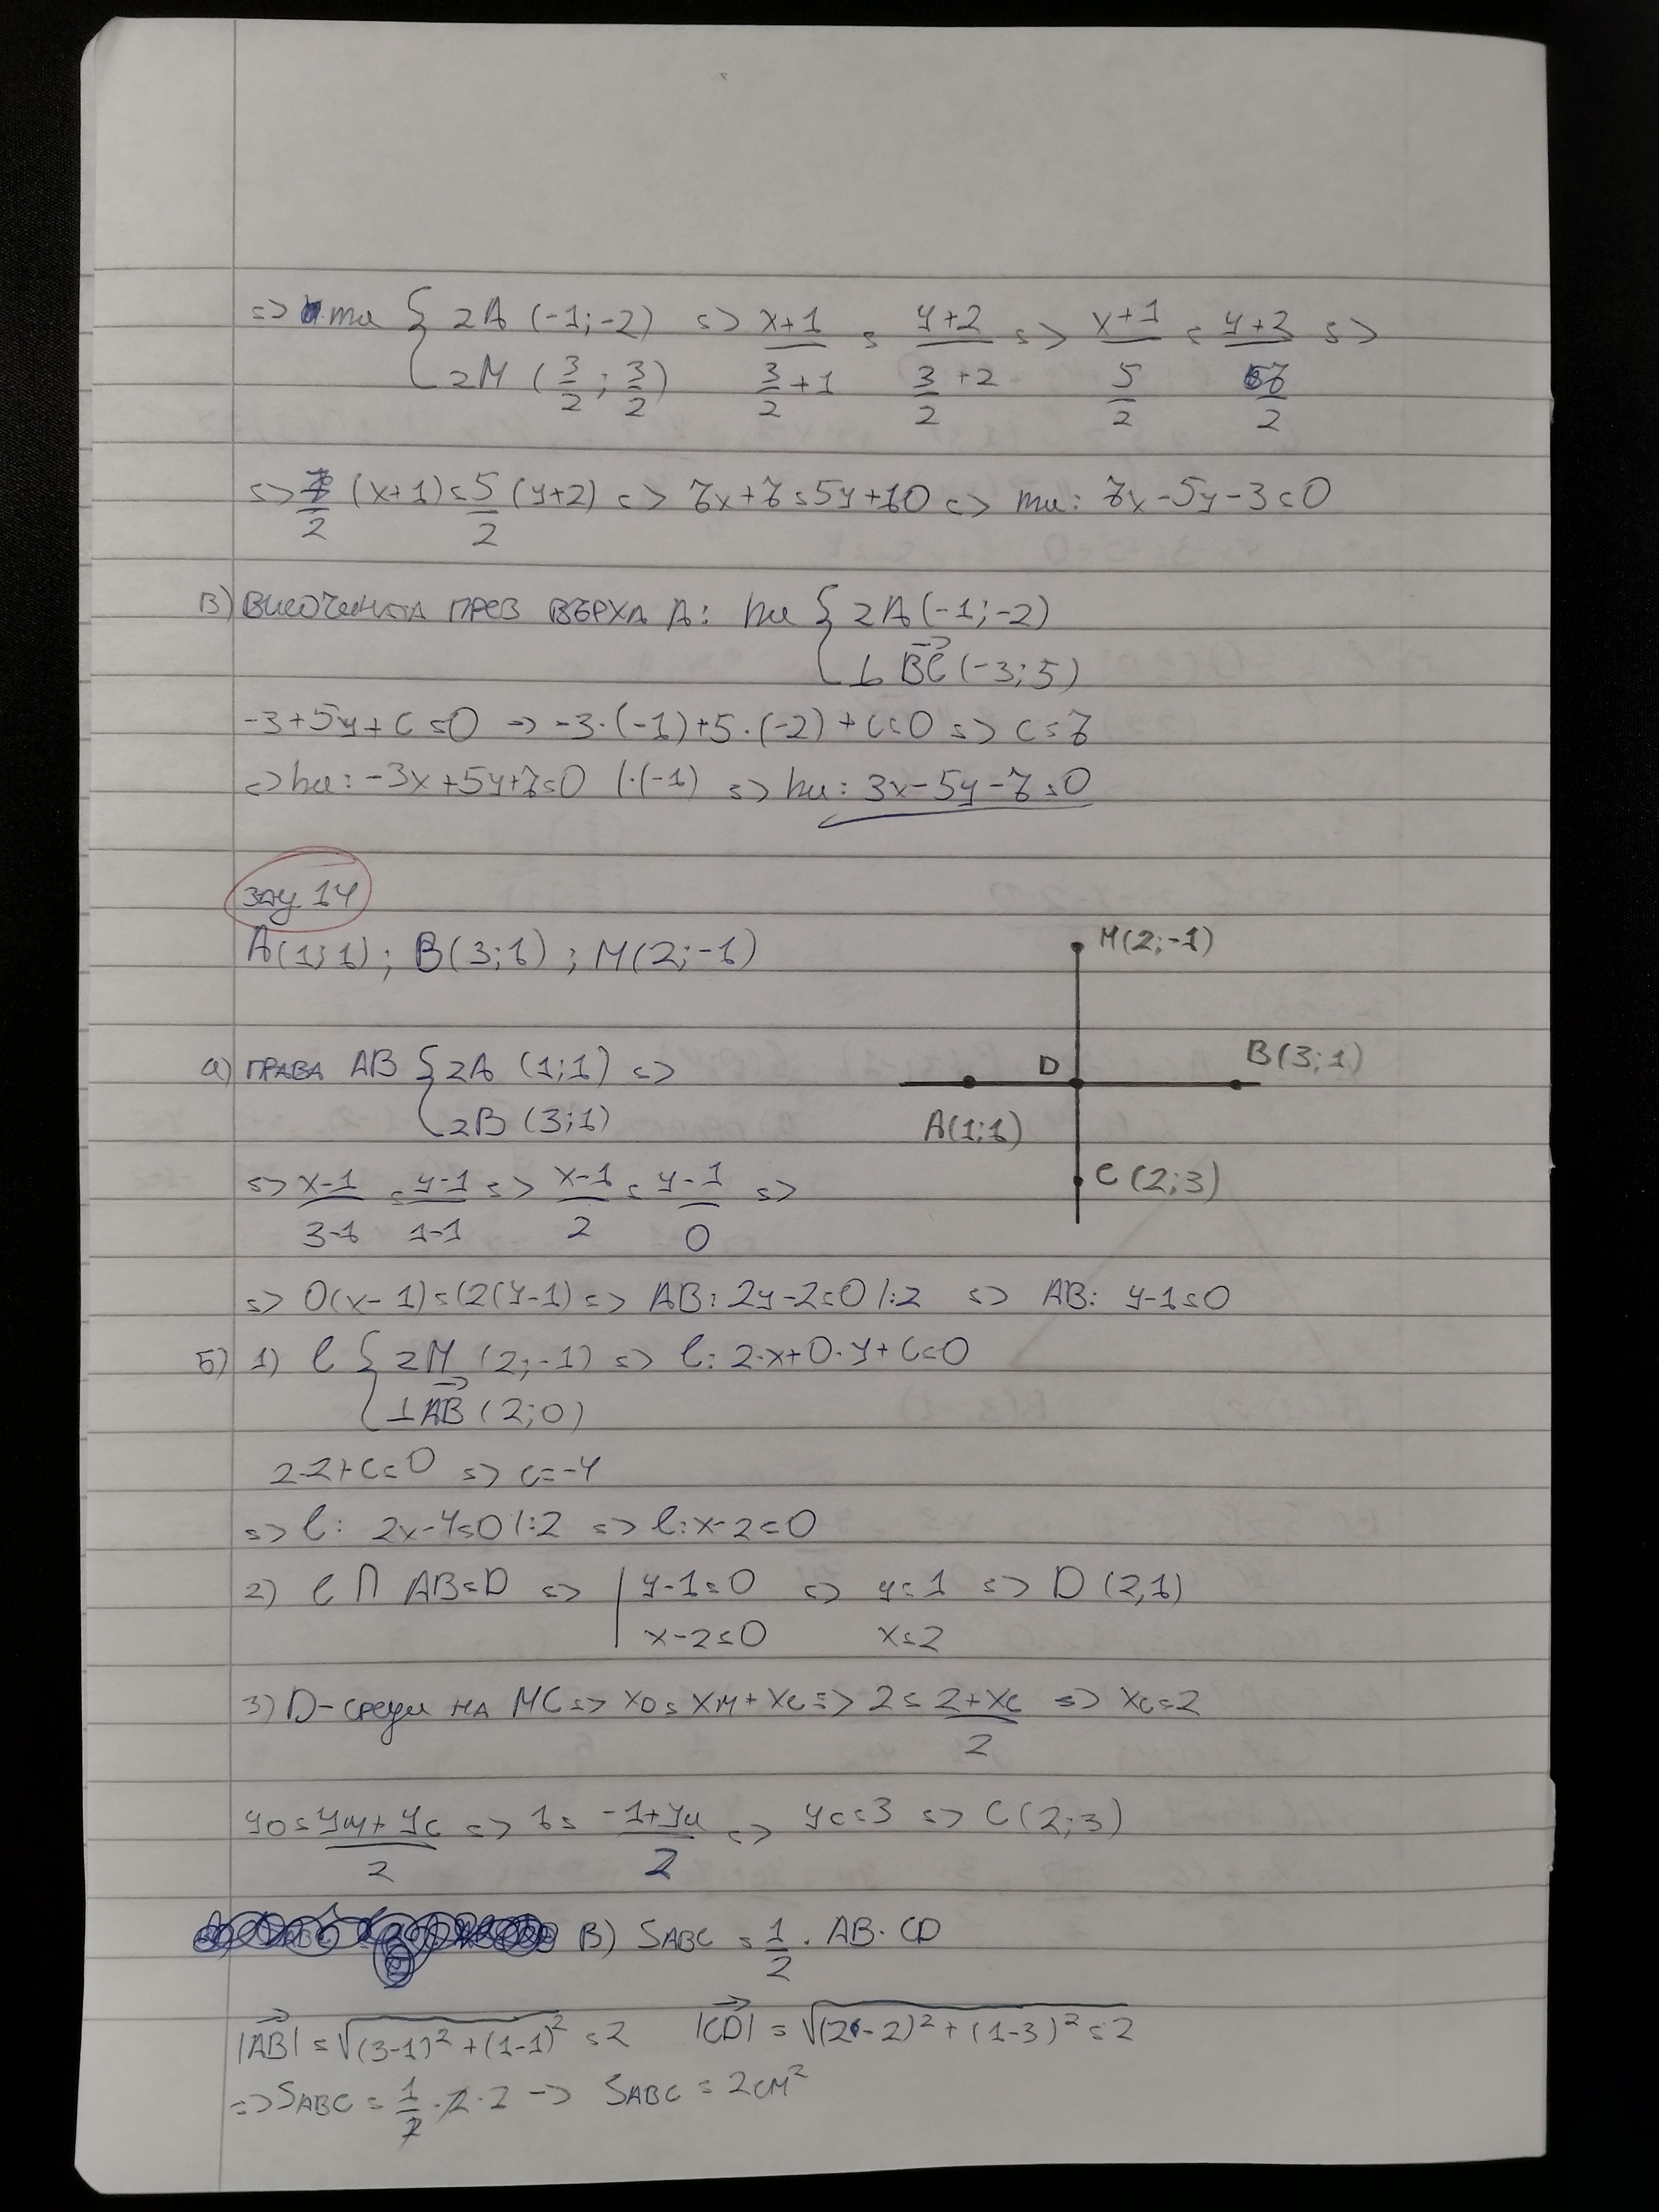 => ma { zA (-1;-2) => x+1/(3/2+1) = y+2/(3/2+2) => x+1/(5/2) = y+2/(7/2) =>
zM (3/2; 3/2)
=> 7/2 (x+1) = 5/2 (y+2) => 7x+7=5y+10 => ma: 7x-5y-3=0
В) ВИСОЧИНАТА ПРЕЗ ВЪРХА А: ha { zA(-1;-2)
⊥ BC→ (-3;5)
-3+5y+C=0 => -3.(-1)+5.(-2)+C=0 => C=7
=> ha: -3x+5y+7=0 |.(-1) => ha: 3x-5y-7=0
зад. 14
A(1;1); B(3;1); M(2;-1)
M(2;-1)
а) ПРАВА AB { zA (1;1) =>
zB (3;1)
D
B(3;1)
A(1;1)
C(2;3)
=> x-1/3-1 = y-1/1-1 => x-1/2 = y-1/0 =>
=> 0(x-1)=(2(y-1) => AB: 2y-2=0 |:2 => AB: y-1=0
Б) 1) l { zM (2;-1) => l: 2.x+0.y+C=0
⊥AB→ (2;0)
2.2+C=0 => C=-4
=> l: 2x-4=0 |:2 => l: x-2=0
2) l ∩ AB=D => | y-1=0 => y=1 => D (2,1)
x-2=0 x=2
3) D-среда на MC => xD = xM+xC => 2 = 2+xC/2 => xC=2
yD = yM+yC/2 => 1 = -1+yC/2 => yC=3 => C(2;3)
В) SABC = 1/2 . AB. CD
|AB→| = √(3-1)²+(1-1)² = 2 |CD→| = √(2-2)²+(1-3)² = 2
=> SABC = 1/2 .2.2 -> SABC = 2cm²